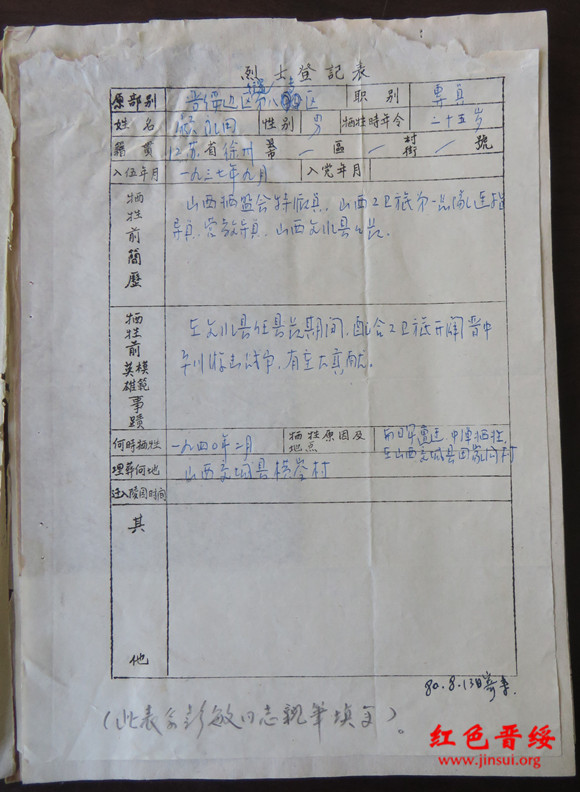 烈士登記表
原部别 晋绥边区第八专区 职别 专员
姓名 顾永田 性别 男 牺牲时年令 二十五岁
籍贯 江苏省徐州 县市 / 區 / 村街 / 號
入伍年月 一九三七年九月 入党年月
牺牲前簡歷
山西牺盟会特派员、山西工卫旅第一总队连指
导员、营教导员、山西文水县县长。
牺牲前英雄模範事蹟
在文水县任县长期间,配合工卫旅开闢晋中
平川游击战争,有重大贡献。
何時牺牲 一九四〇年二月 牺牲原因及地点 与日军遭遇,中弹牺牲,
在山西交城县田家沟村
埋葬何地 山西交城县
迁入陵园时间
其他
80.8.13日
(此表系彭敏同志親笔填写)。
红色晋绥
www.jinsui.org